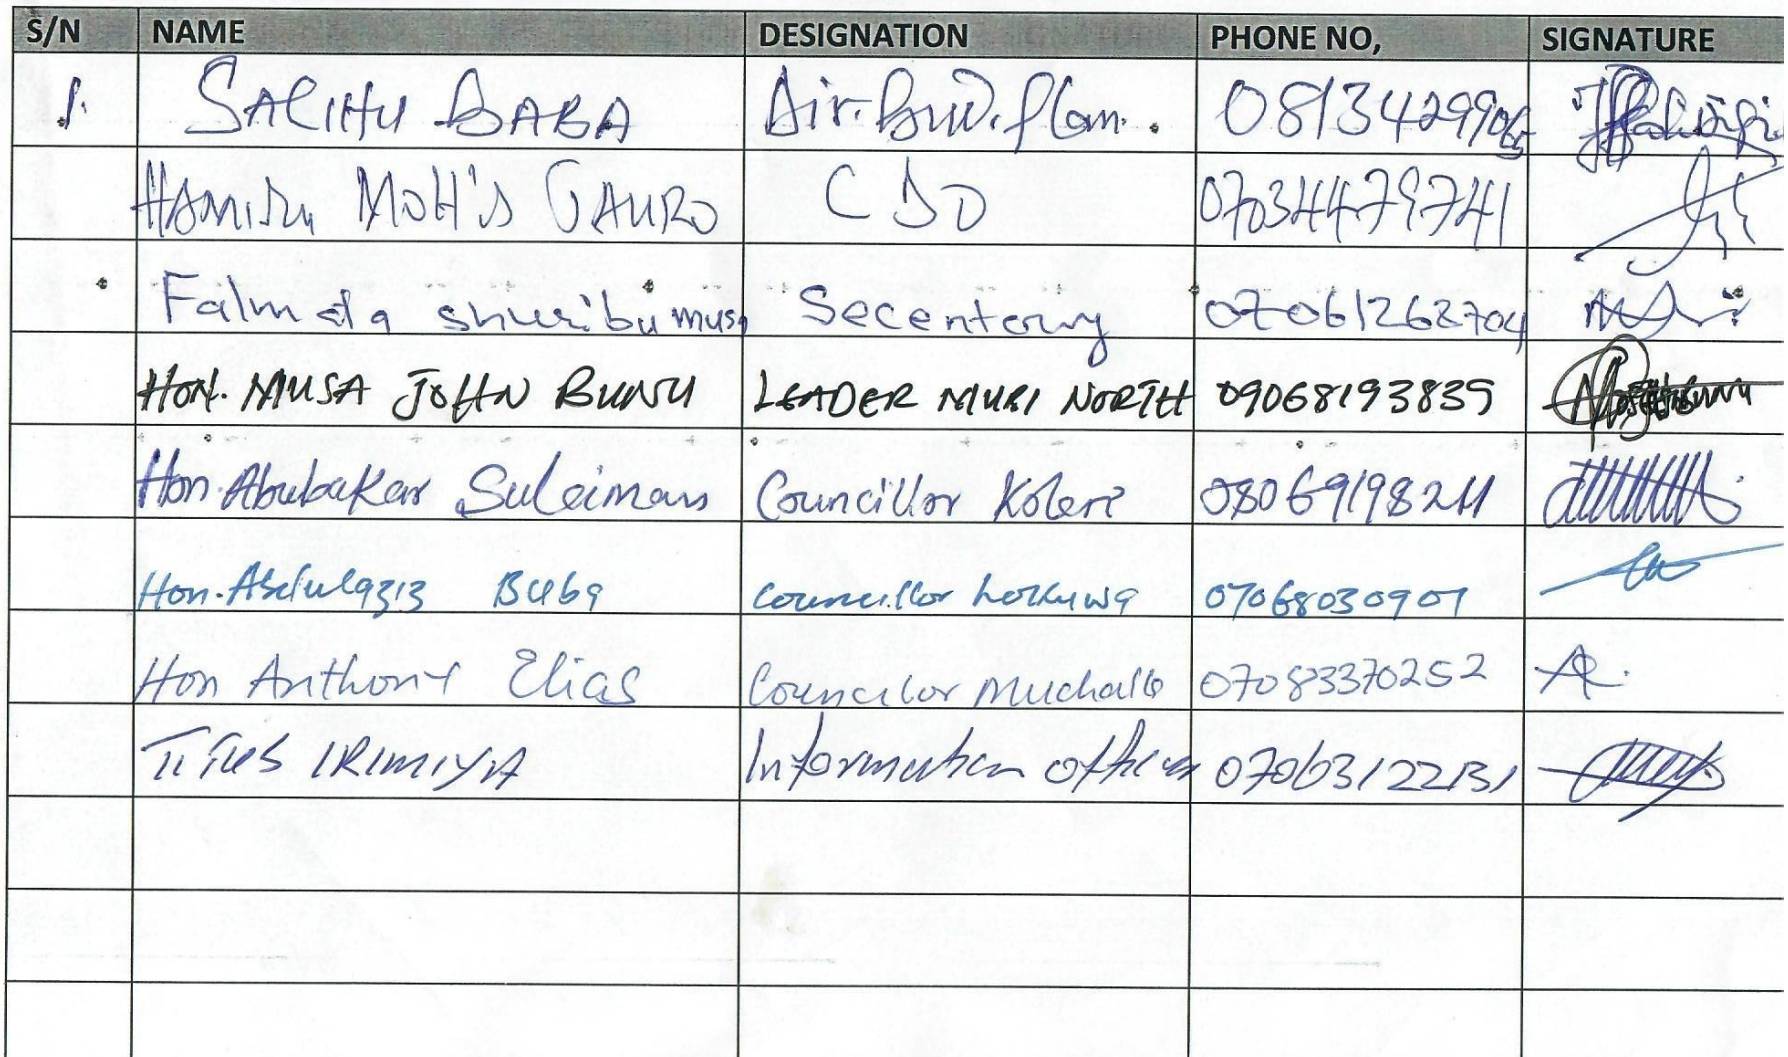 S/N NAME DESIGNATION PHONE NO, SIGNATURE
1. SALIHU BABA Dir. Bud. Plan. 08134299065
HAMISU MOH'D GAURO CDO 07034479741
Falmata shuibu musa Secentary 07061262704
HON. MUSA JOHN BUNU LEADER MUBI NORTH 09068193835
Hon. Abubakar Suleiman Councillor Kolere 08069198211
Hon. Abdulaziz Buba Councillor Lokuwa 07068030907
Hon Anthony Elias Councilor Muchalla 07083370252
TITUS IRIMIYA Information officer 07063122131